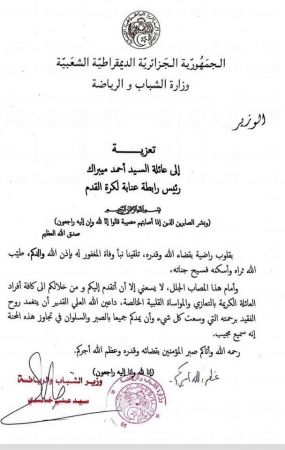 الجمهورية الجزائرية الديمقراطية الشعبية
وزارة الشباب و الرياضة
الوزير
تعزية
إلى عائلة السيد أحمد ميبراك
رئيس رابطة عنابة لكرة القدم
بسم الله الرحمن الرحيم
(وبشر الصابرين الذين إذا أصابتهم مصيبة قالوا إنا لله وإن إليه راجعون)
صدق الله العظيم
بقلوب راضية بقضاء الله وقدره، تلقينا نبأ وفاة المغفور له بإذن الله والدكم، طيّب
الله ثراه وأسكنه فسيح جنانه،
وأمام هذا المصاب الجلل، لا يسعني إلا أن أتقدم إليكم و من خلالكم الى كافة أفراد
العائلة الكريمة بالتعازي والمواساة القلبية الخالصة، داعين الله العلي القدير أن يتغمد روح
الفقيد برحمته التي وسعت كل شيء وأن يمدكم جميعا بالصبر والسلوان في تجاوز هذه المحنة
إنه سميع مجيب.
رحمه الله وأثاكم صبر المؤمنين بقضائه وقدره وعظم الله أجركم.
(إنا لله وإنا إليه راجعون)
عظم الله أجركم
وزير الشباب والرياضة
سيد علي خالدي